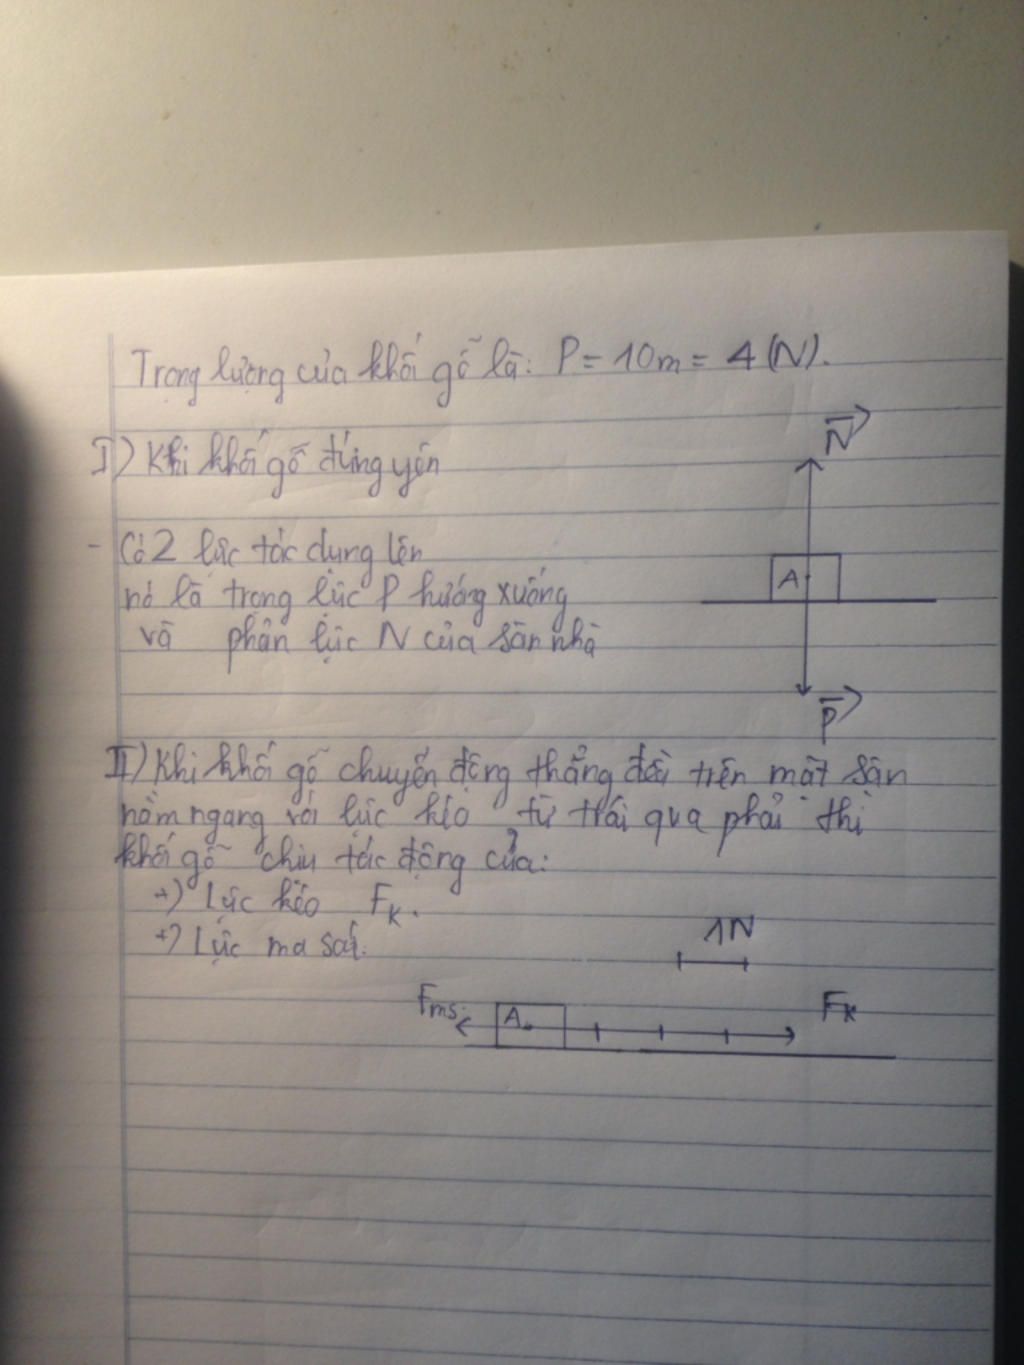 Trọng lượng của khối gỗ là: P = 10m = 4 (N).
I) Khi khối gỗ đứng yên
- Có 2 lực tác dụng lên
nó là trọng lực P hướng xuống
và phản lực N của sàn nhà
N
A
P
II) Khi khối gỗ chuyển động thẳng đều trên mặt sàn
nằm ngang với lực kéo từ trái qua phải thì
khối gỗ chịu tác động của:
+) Lực kéo Fk.
+) Lực ma sát.
1N
Fms
A
Fk